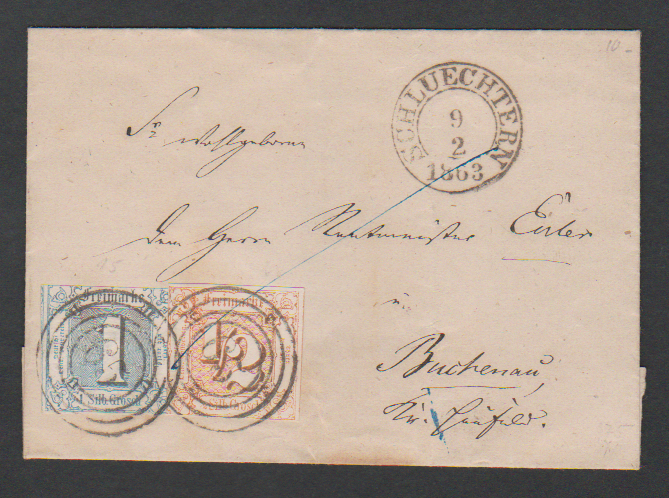 10-
SCHLUECHTERN
9
2
1863
Sr Wohlgeboren
dem Herrn Rentmeister Euler
in
Buchenau,
Kr. Hünfeld.
Freimarke
1
1 Silb. Grosch.
Freimarke
1/2
Silb. Grosch.